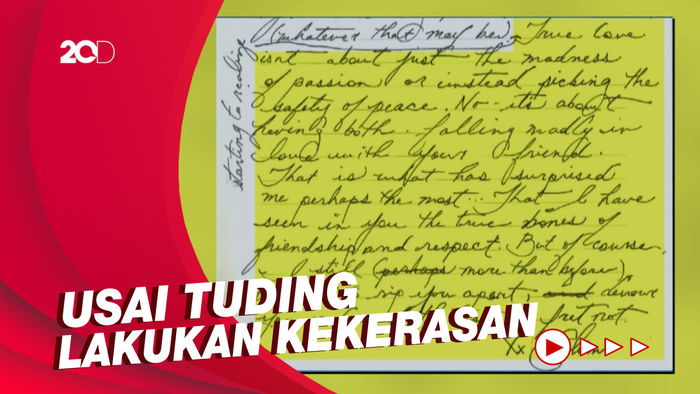 20D
starting to realize
(whatever that may be). True love
isnt about just the madness
of passion or instead picking the
safety of peace. No - it's about
having both. falling madly in
love with your friend.
That is what has surprised
me perhaps the most... That I have
seen in you the true bones of
friendship and respect. But of course,
I still (perhaps more than before)
rip you apart, and devour
but not.
Xx
USAI TUDING
LAKUKAN KEKERASAN